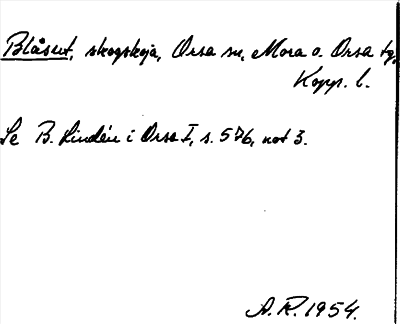 Blåsut, skogskoja, Orsa sn, Mora o. Orsa tg,
Kopp. l.
Se B. Lindén i Orsa I, s. 576, not 3.
A. R. 1954.